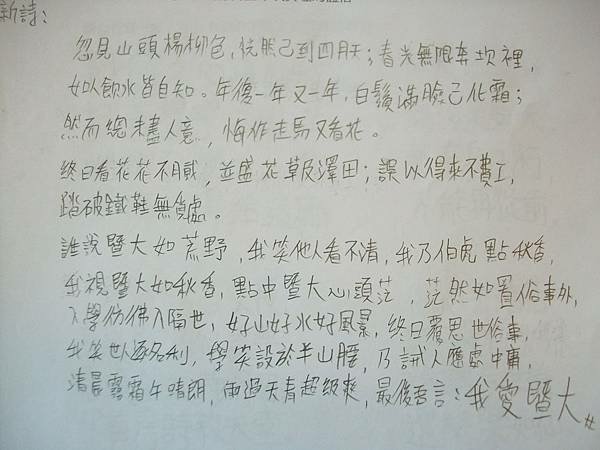 新詩：
忽見山頭楊柳色，恍然已到四月天；春光無限奔坎裡，
如人飲水皆自知。年復一年又一年，白鬚滿臉已化霜；
然而總未盡人意，悔作走馬又看花。
終日看花花不厭，並盛花草及澤田；誤以得來不費工，
踏破鐵鞋無覓處。
誰說暨大如荒野，我笑他人看不清，我乃伯虎點秋香，
我視暨大如秋香，點中暨大心頭茫，茫然如置俗事外，
入學彷彿入隔世，好山好水好風景，終日覆思世俗事，
我笑世人逐名利，學笑設於半山腰，乃誡人應處中庸，
清晨露霜午晴朗，雨過天青超級爽，最後吾言：我愛暨大。